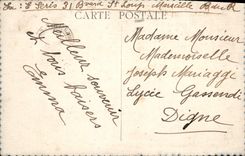 E. Seris 21 Bvard St Loup Marseille B du R
CARTE POSTALE
Meilleur souvenir
et bons baisers
Emma
Madame Monsieur
Mademoiselle
Joseph Mariaggi
Lycée Gassendi
Digne